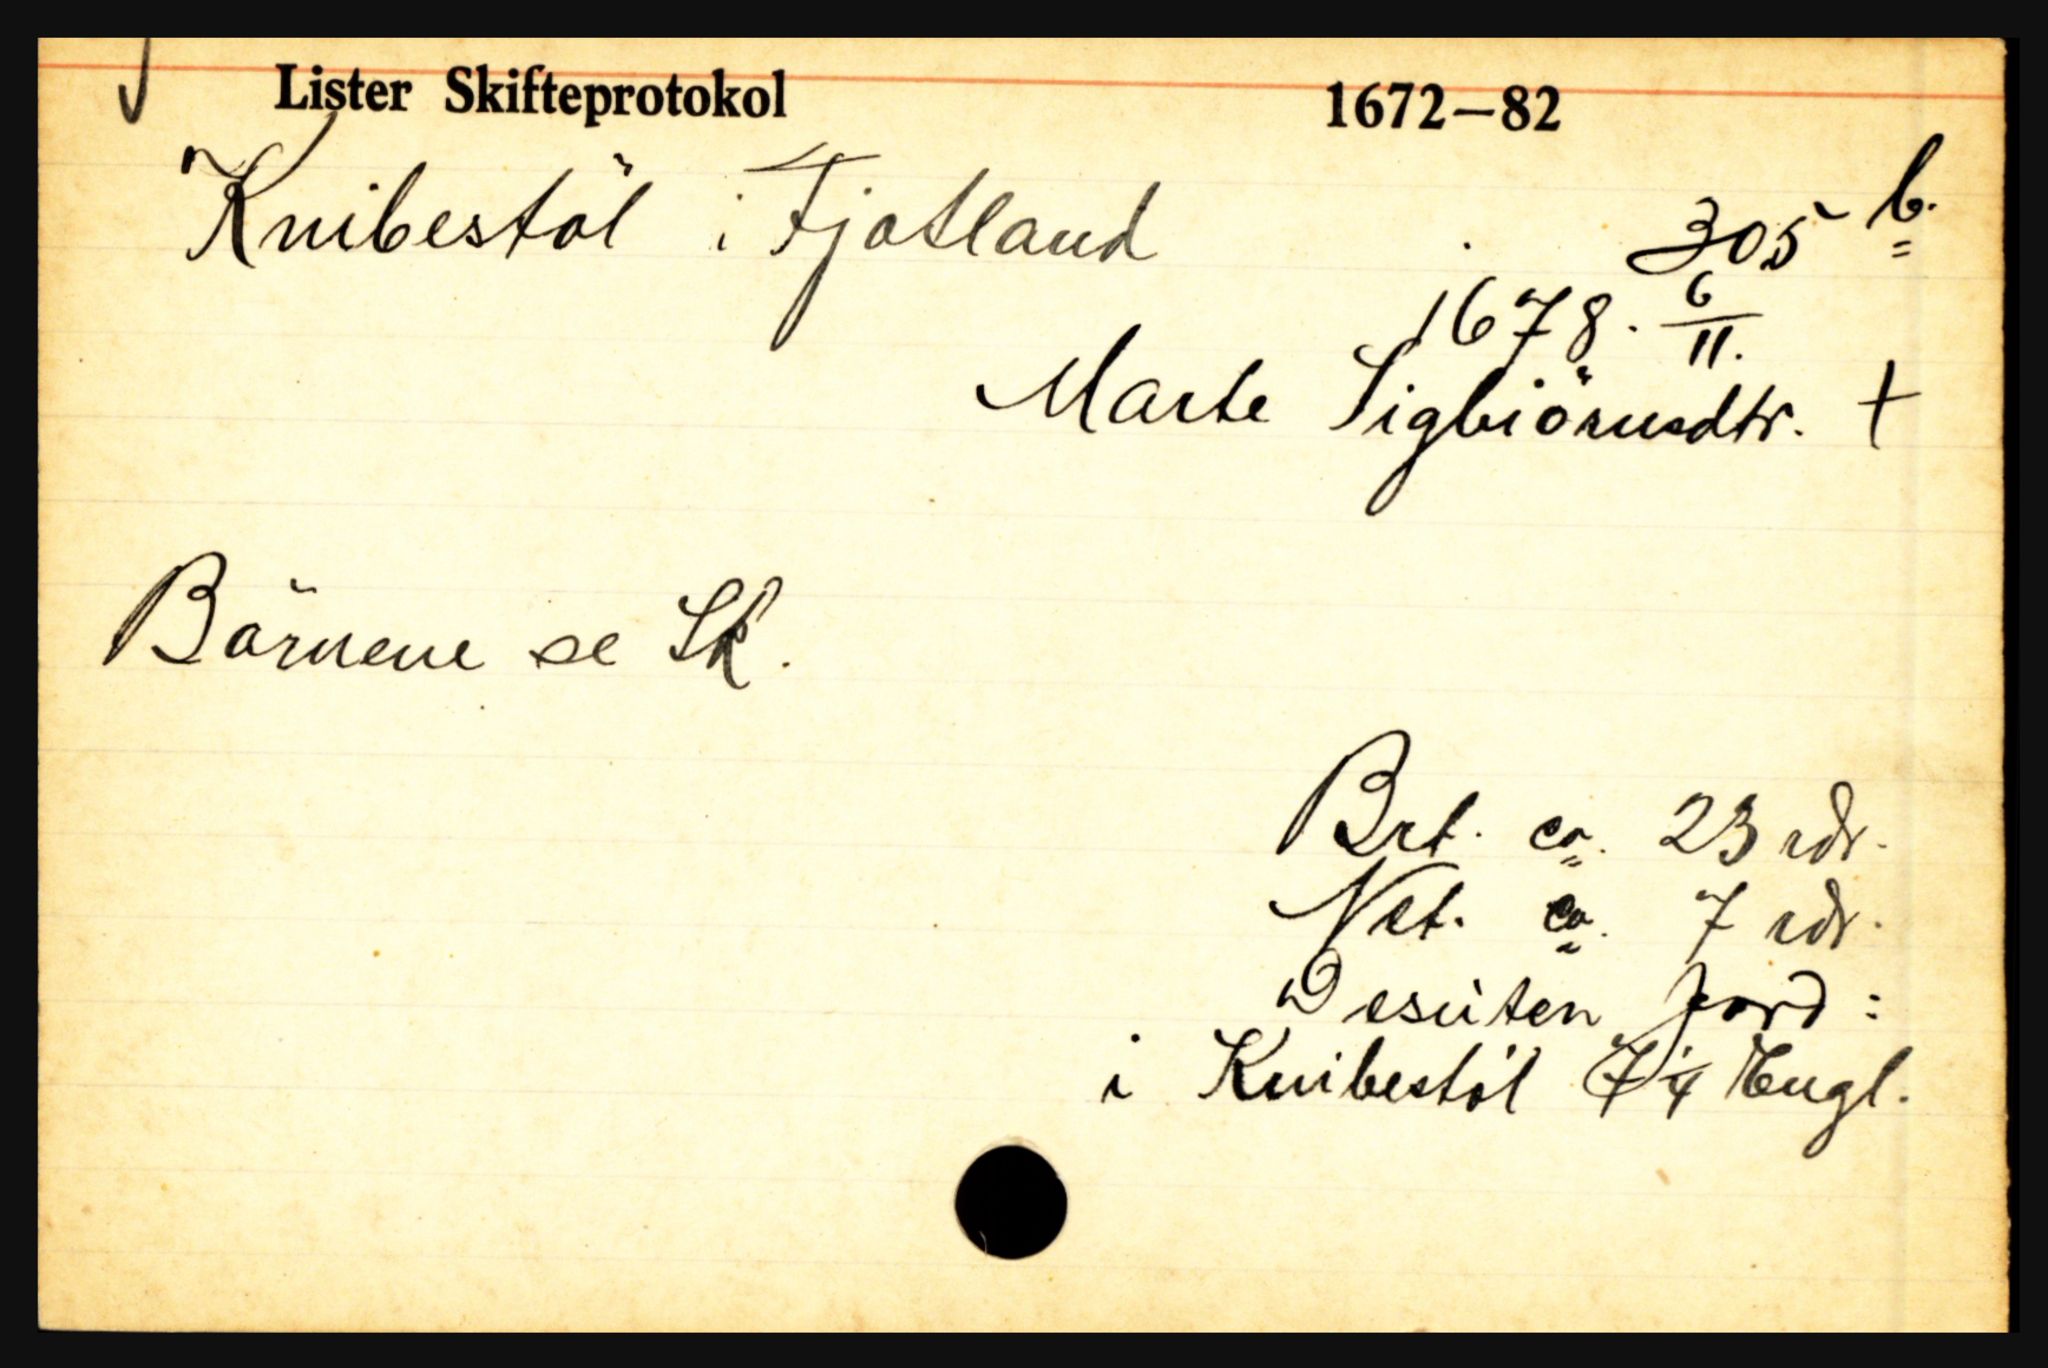 Lister Skifteprotokol 1672–82
Knibestöl i Fjotland 305 b.
1678. 6/11.
Marte Sigbiörnsdtr. +
Börnene se Sk.
Brt. ca. 23 rdr.
Net. ca. 7 rdr.
Desuten jord:
i Knibestöl 7 1/4 Engl.